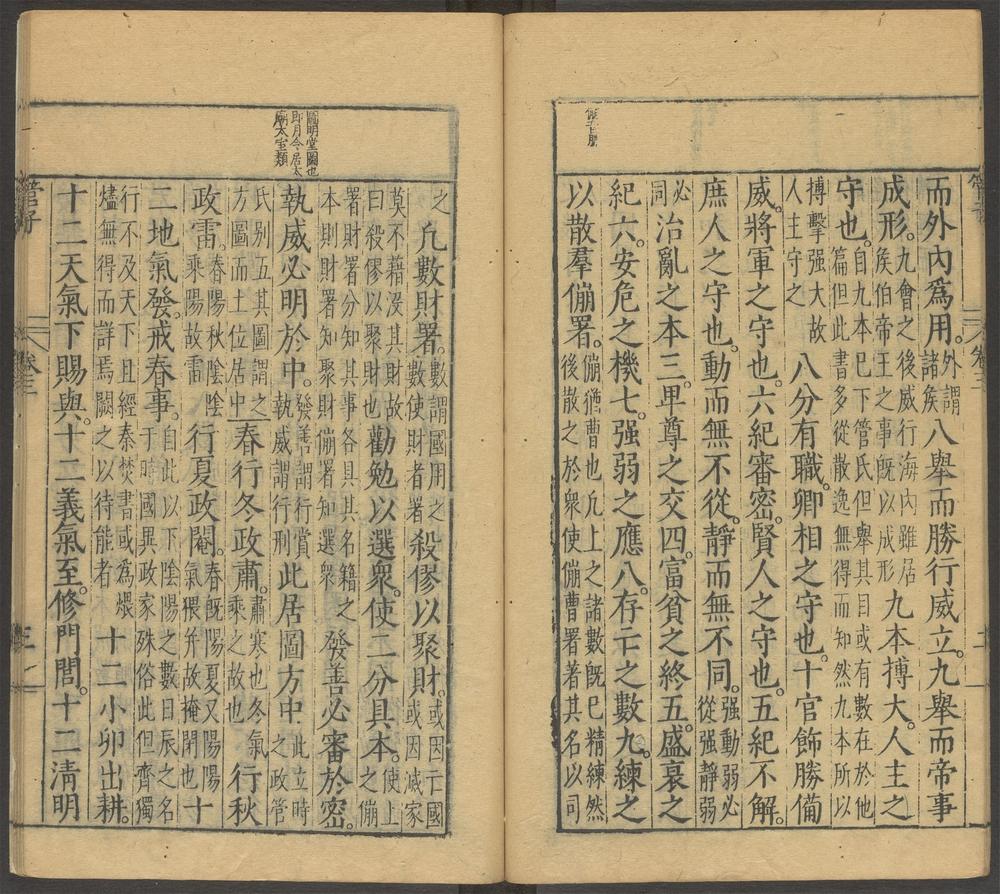 而外內爲用。外謂諸侯八舉而勝行威立。九舉而帝事
成形。九會之後威行海內雖居侯伯帝王之事旣以成形九本搏大。人主之
守也。自九本已下管氏但舉其目或有數在於他篇但此書多從散逸無得而知然九本所以
搏擊强大故人主守之八分有職。卿相之守也。十官飾勝備
威。將軍之守也。六紀審密。賢人之守也。五紀不解。
庶人之守也。動而無不從。靜而無不同。强動弱必從强靜弱
必同治亂之本三。卑尊之交四。富貧之終五。盛衰之
紀六。安危之機七。强弱之應八。存亡之數九。練之
以散羣傰署。傰猶曹也凢上之諸數旣已精練然後散之於衆使傰曹署著其名以司
圖明堂圖也
即月令居太
廟太室類
之凢數財署。數謂國用之數使財者署殺僇以聚財。或因亡國或因烕家
莫不藉没其財故曰殺僇以聚財也勸勉以選衆。使二分具本。使上之傰
署財署分知其事各具其名籍之本則財署知聚財傰署知選衆發善必審於密。
執威必明於中。發善謂行賞執威謂行刑此居圖方中此立時之政管
氏别五其圖謂之方圖而土位居中春行冬政肅。肅寒也冬氣乘之故也行秋
政雷。春陽秋陰陰乘陽故雷行夏政閹。春旣陽夏又陽陽氣猥并故掩閉也十
二地氣發。戒春事。自此以下陰陽之數日辰之名于時國異政家殊俗此但齊獨
行不及天下且經秦焚書或爲煨燼無得而詳焉闕之以待能者十二小卯出耕。
十二天氣下賜與。十二義氣至。修門閭。十二清明
管子
卷三
三